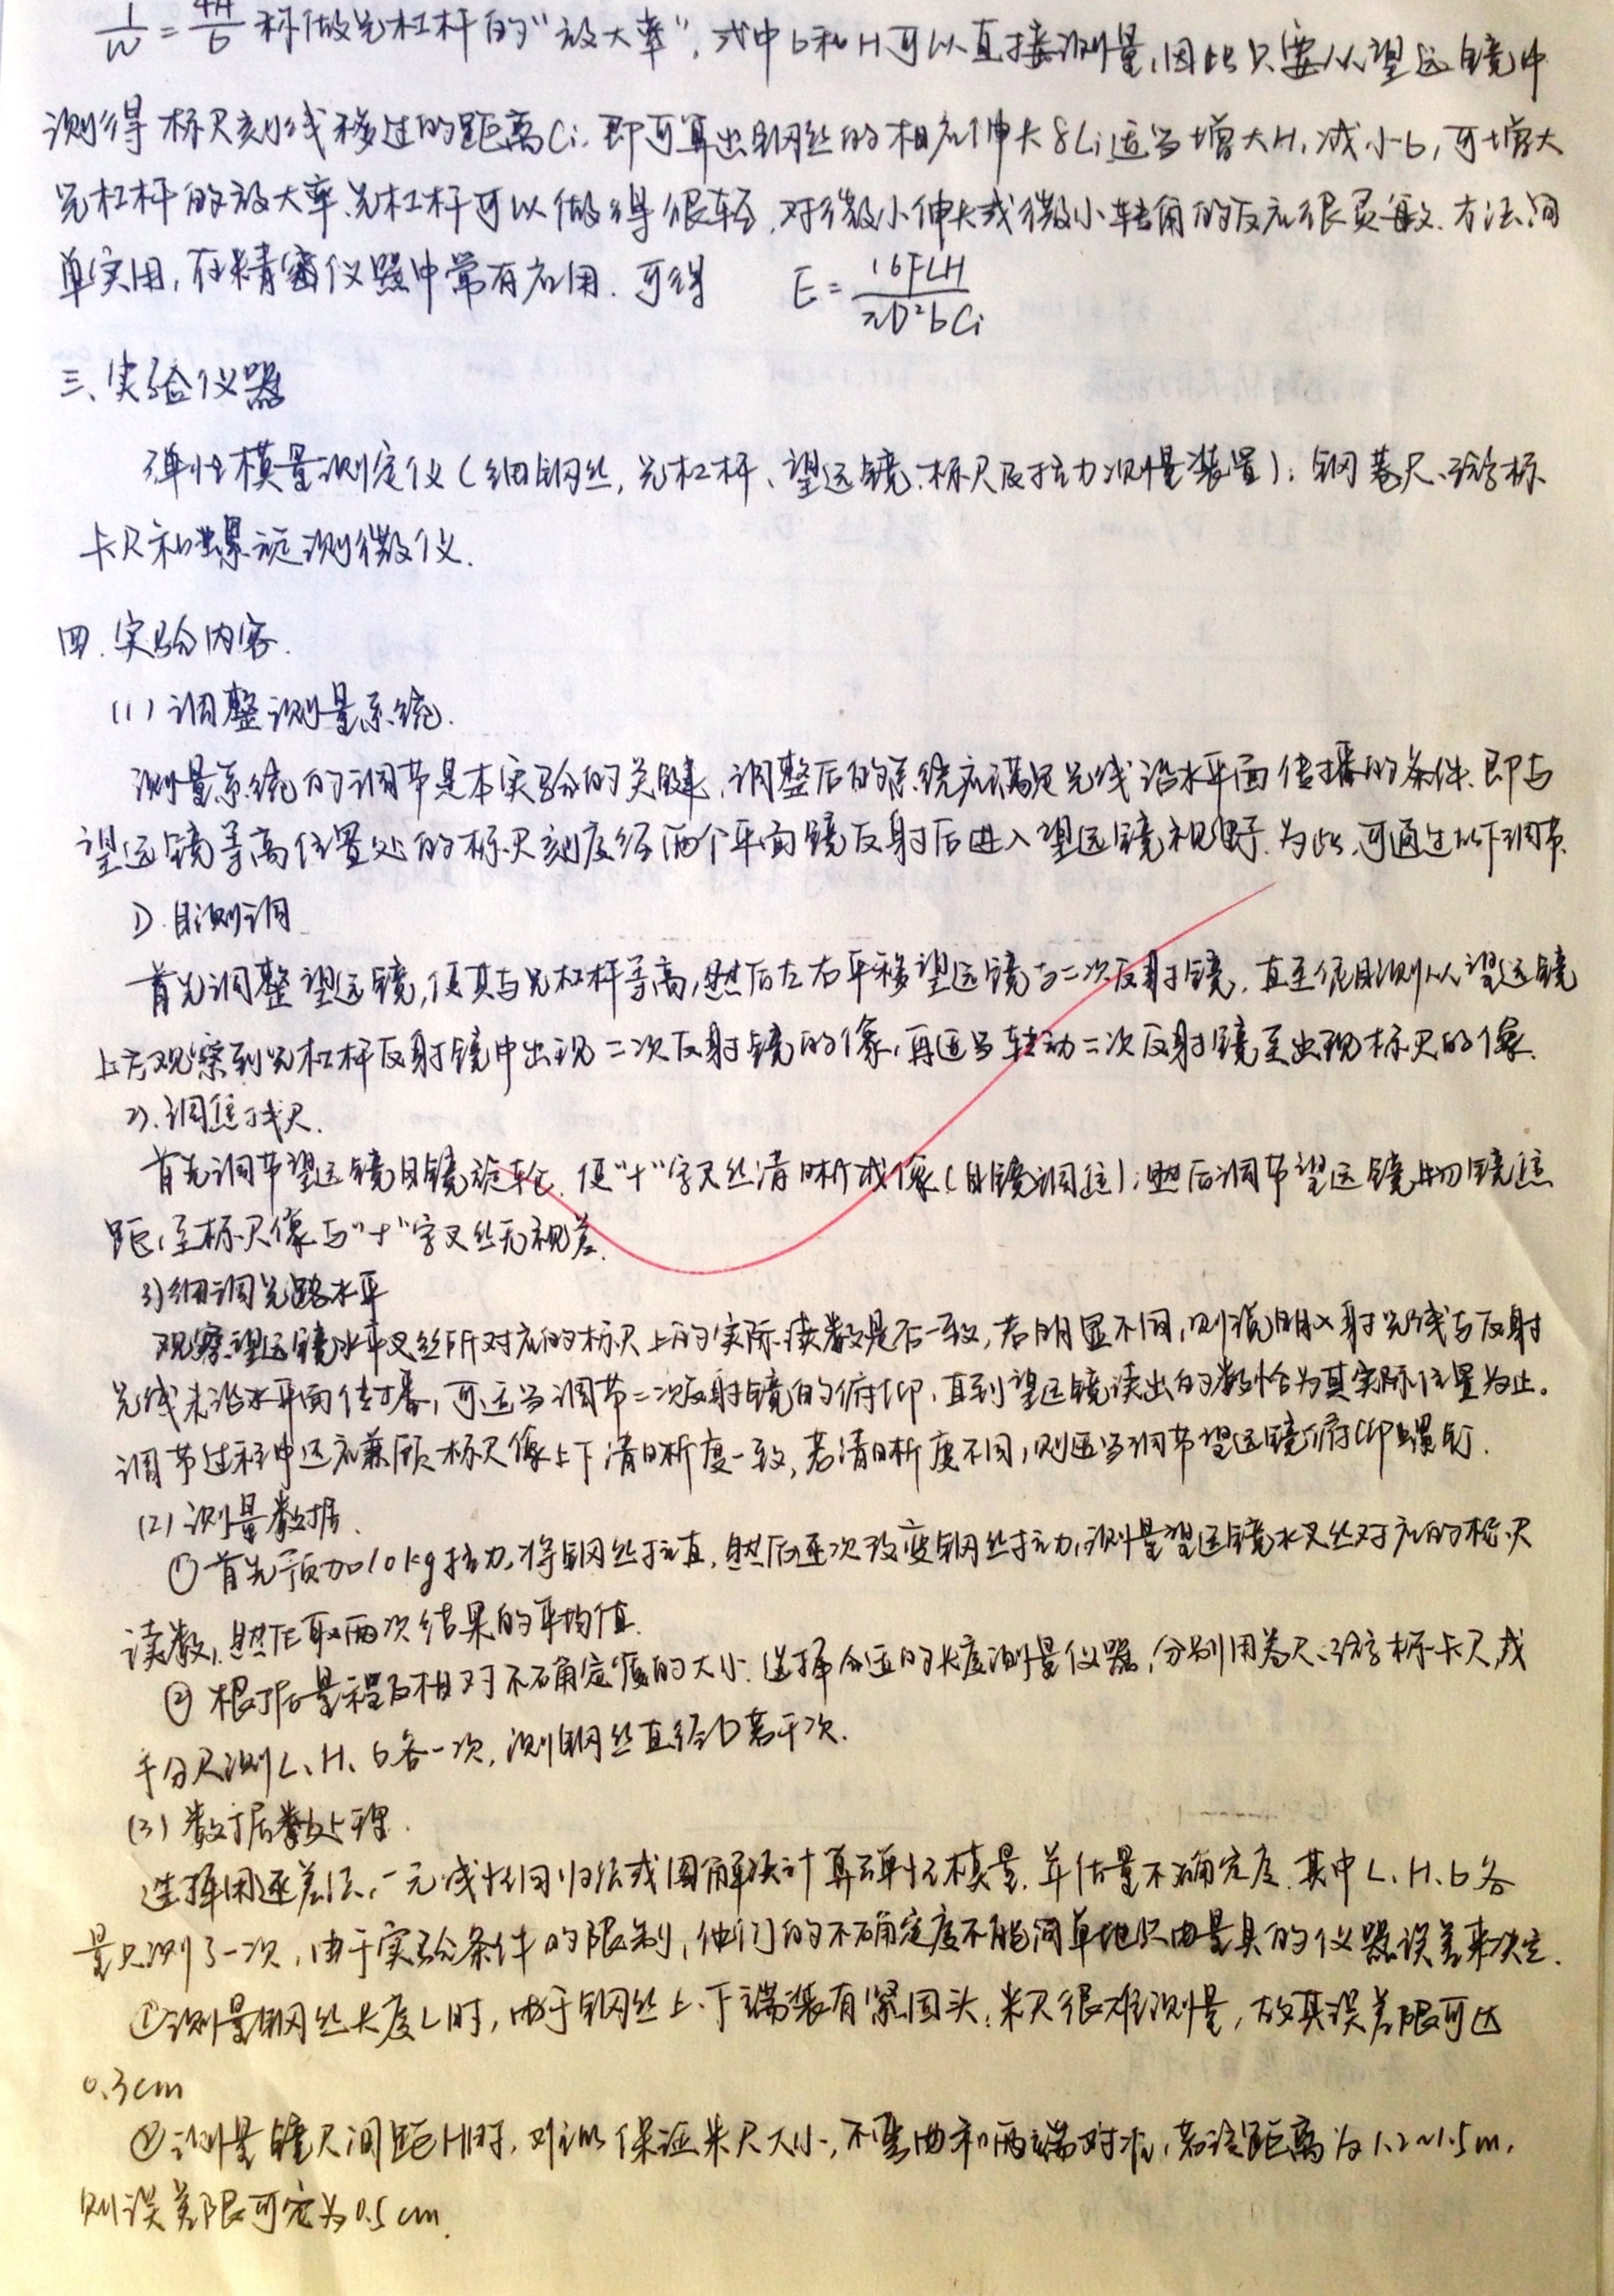 1/W = 4H/b 称做光杠杆的"放大率",式中b和H可以直接测量,因此只要从望远镜中
测得标尺刻线移过的距离Ci,即可算出钢丝的相应伸长δLi适当增大H,减小b,可增大
光杠杆的放大率.光杠杆可以做得很轻,对微小伸长或微小转角的反应很灵敏.方法简
单实用,在精密仪器中常有应用.可得 E = 16FLH/πD²bCi
三、实验仪器
弹性模量测定仪(细钢丝,光杠杆、望远镜、标尺及拉力测量装置);钢卷尺、游标
卡尺和螺旋测微仪.
四.实验内容.
(1)调整测量系统.
测量系统的调节是本实验的关键,调整后的系统应满足光线沿水平面传播的条件.即与
望远镜等高位置处的标尺刻度经两个平面镜反射后进入望远镜视野.为此,可通过以下调节.
1).目测调
首先调整望远镜,使其与光杠杆等高,然后左右平移望远镜与二次反射镜,直至凭目测从望远镜
上方观察到光杠杆反射镜中出现二次反射镜的像,再适当转动二次反射镜至出现标尺的像.
2).调焦找尺.
首先调节望远镜目镜旋轮,使"十"字叉丝清晰成像(目镜调焦);然后调节望远镜物镜焦
距,至标尺像与"十"字叉丝无视差.
3)细调光路水平
观察望远镜水平叉丝所对应的标尺上的实际读数是否一致,若明显不同,则说明入射光线与反射
光线未沿水平面传播,可适当调节二次反射镜的俯仰,直到望远镜读出的数恰为其实际位置为止。
调节过程中还应兼顾标尺像上下清晰度一致,若清晰度不同,则适当调节望远镜俯仰螺钉.
(2)测量数据.
①首先预加10kg拉力,将钢丝拉直,然后逐次改变钢丝拉力,测量望远镜水叉丝对应的标尺
读数,然后取两次结果的平均值.
②根据量程及相对不确定度的大小.选择合适的长度测量仪器,分别用卷尺、游标卡尺,或
千分尺测L、H、b各一次,测钢丝直径D若干次.
(3)数据处理.
选择用逐差法、一元线性回归法或图解法计算弹性模量,并估量不确定度.其中L、H、b各
量只测了一次,由于实验条件的限制,他们的不确定度不能简单地只由量具的仪器误差来决定.
①测量钢丝长度L时,由于钢丝上、下端装有紧固头,米尺很难测量,故其误差限可达
0.3cm
②测量镜尺间距H时,难以保证米尺大小,不弯曲和两端对准,若该距离为1.2~1.5m,
则误差限可定为0.5cm.